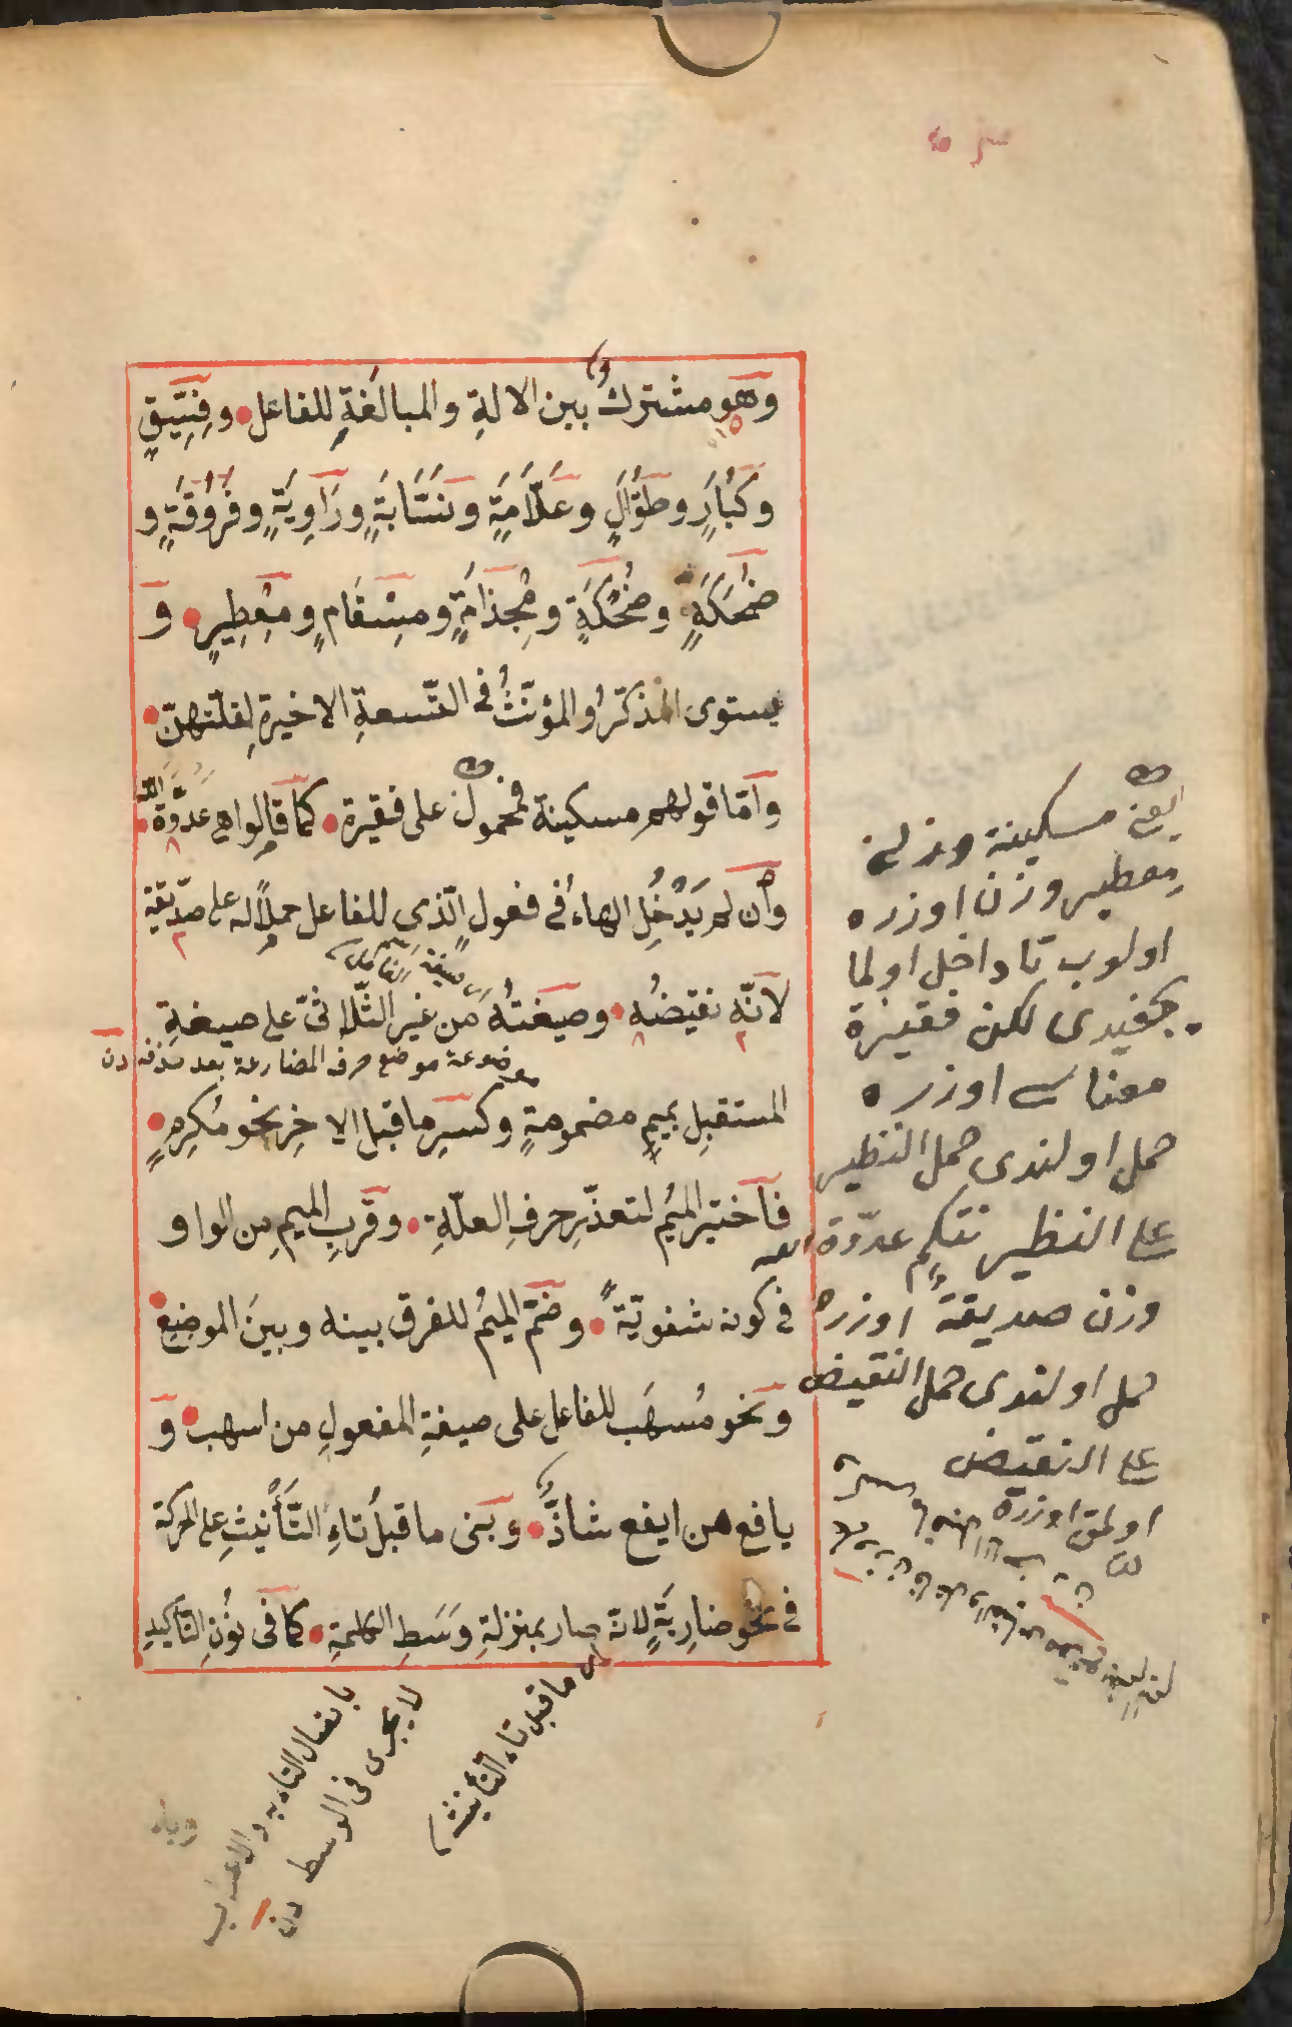 وهو مشترك بين الالةِ والمبالغةِ للفاعل وفِسِّيقٍ
وكُبَّارٍ وطُوَّالٍ وعَلَّامَةٍ ونَسَّابَةٍ ورَاوِيَةٍ وفَرُوقَةٍ و
ضُحَكَةٍ وضُحْكَةٍ ومِجْذَامَةٍ ومِسْقَامٍ ومِعْطِيرٍ وَ
يستوى المذكّرُ والمؤنّثُ فى التّسعةِ الاخيرةِ لقلّتهنّ
وَامّا قولهم مسكينة فمحمولٌ على فقيرة كما قالوا هى عدوّة الله
وأن لم يَدْخُلِ الهاءُ فى فعول الّذى للفاعل حملاً له على صدّيقة
لانّه نقيضُه وصيغتُهُ من غيرِ الثّلاثىّ على صيغةِ
اى صيغة الفاعل
موضوعة موضع حرف المضارعة بعد حذفه
المستقبلِ بميمٍ مضمومةٍ وكسرِ ما قبل الاخِرِ نحو مُكرِمٍ
فاختير الميُم لتعذّرِ حرفِ العلّةِ وقربِ الميمِ مِن الواو
فى كونه شفويّةً وضمّ الميُم للفرق بينه وبينَ الموضِعِ
ونحو مُسهَب للفاعل على صيغةِ المفعولِ من اسهب وَ
يافع من ايفع شاذٌّ وبَنى ما قبلُ تاءِ التَّأْنيثِ على الحركة
فى نحو ضارِبَةٍ لانه صار بمنزلةِ وَسَطِ الكلمةِ كما فى نُونِ التأكيدِ
يعنى مسكينة وزنى
مِعطير وزن اوزره
اولوب تا داخل اولما
يجغيدى لكن فقيرة
معناسى اوزره
حمل اولندى حمل النظير
على النظير نتكم عدوّة الله
وزن صديقةً اوزره
حمل اولندى حمل النقيض
على النقيض
اولمق اوزره
اى ما قبل تاء التأنيث
لا يجرى فى الوسط
باتصال التاء به والاعراب
وياء